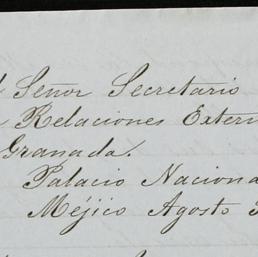 Señor Secretario
Relaciones Exter
Granada.
Palacio Naciona
Méjico Agosto